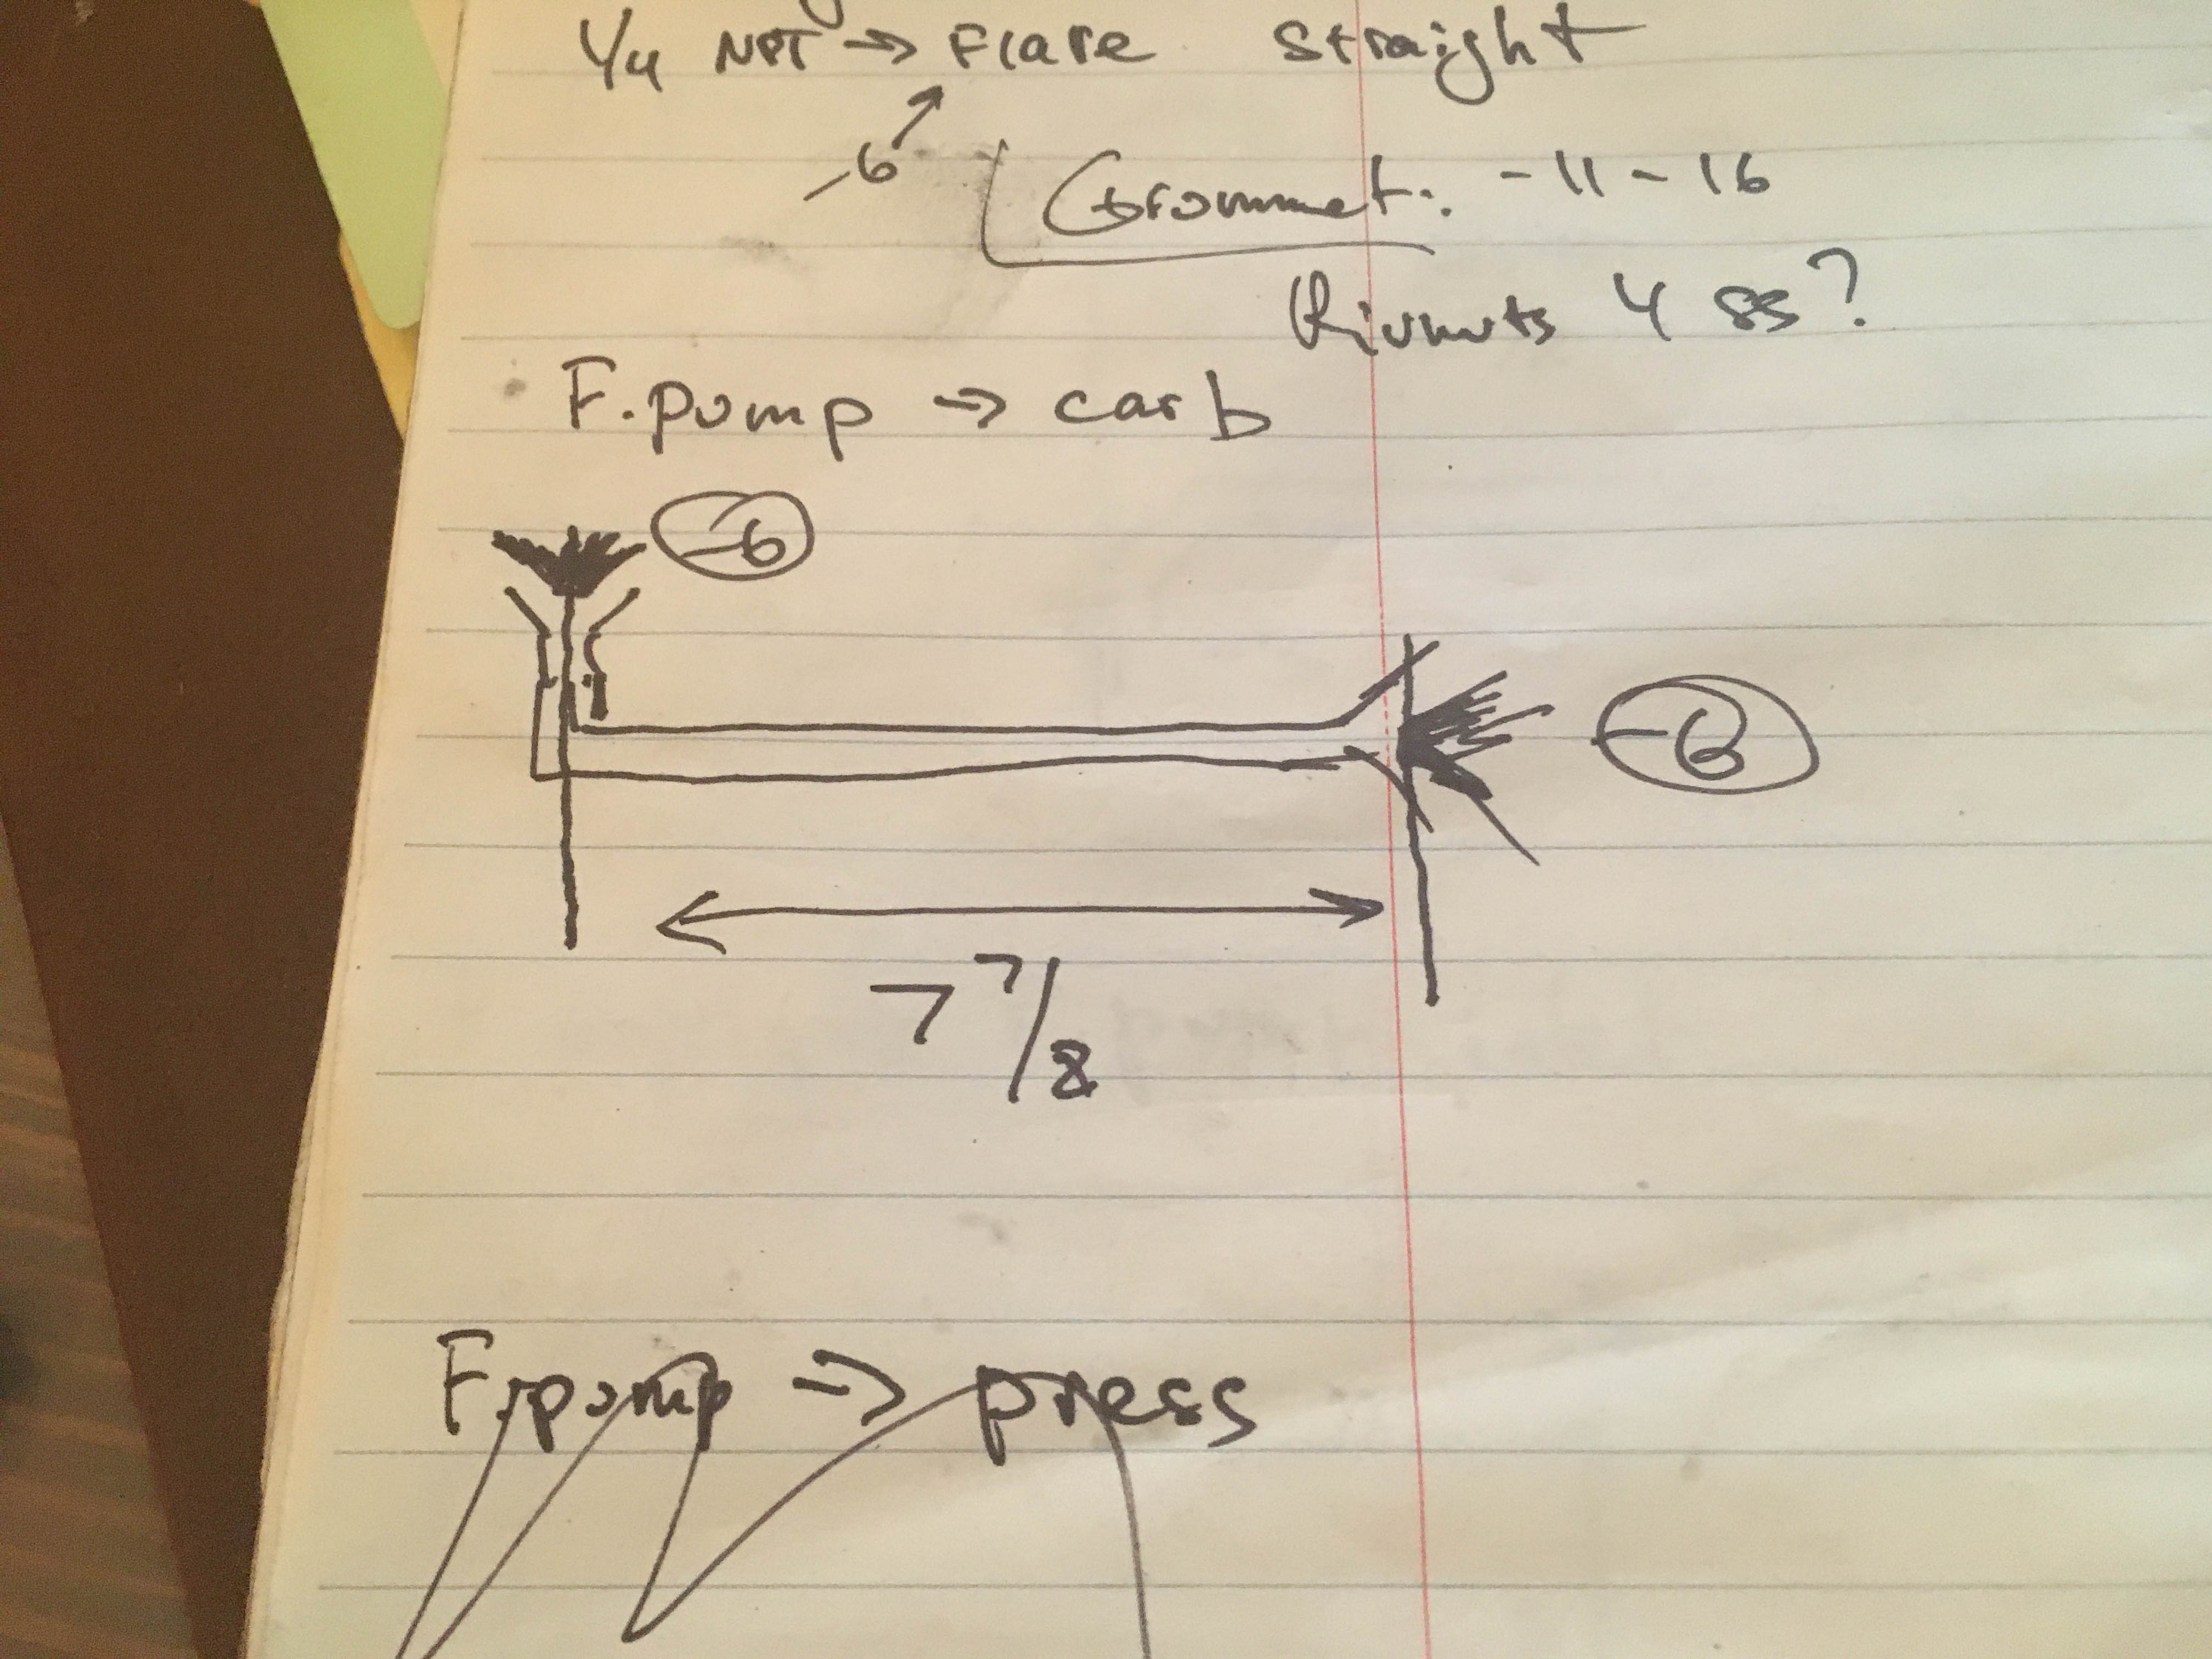 1/4 NPT → Flare Straight
-6
Grommet: -11-16
Rivnuts 4 ss?
F.pump → carb
-6
-6
7 7/8
F.pump → press